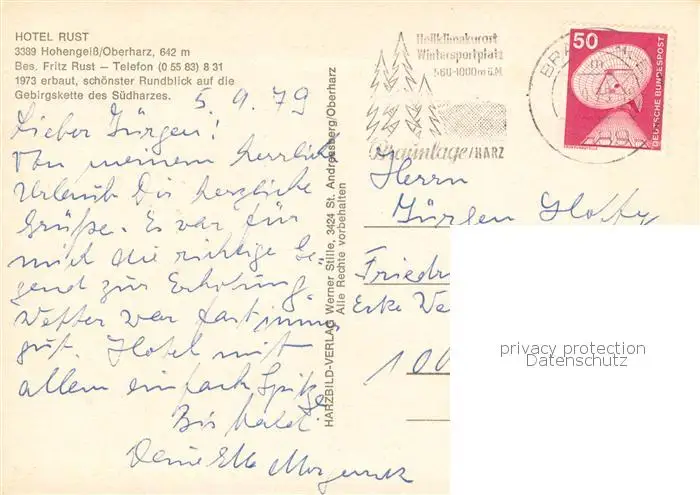 HOTEL RUST
3389 Hohengeiß/Oberharz, 642 m
Bes. Fritz Rust – Telefon (0 55 83) 8 31
1973 erbaut, schönster Rundblick auf die
Gebirgskette des Südharzes.
5. 9. 79
Lieber Jürgen!
Von meinem herrlich
Urlaub Dir herzliche
Grüße. Es war für
mich die richtige Ge-
gend zur Erholung.
Wetter war fast immer
gut. Hotel mit
allem einfach Spitze
Bis bald.
Deine
HARZBILD-VERLAG Werner Stille, 3424 St. Andreasberg/Oberharz
Alle Rechte vorbehalten
Heilklimakurort
Wintersportplatz
560-1000m ü.M.
Braunlage/HARZ
BRA
50
DEUTSCHE BUNDESPOST
Herrn
Jürgen
Friedr
Ecke We
100
privacy protection
Datenschutz